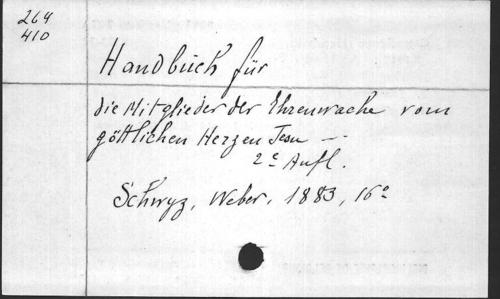 264
410
Handbuch für
die Mitglieder der Ehrenwache vom
göttlichen Herzen Jesu —
2e Aufl.
Schwyz, Weber, 1883, 16o